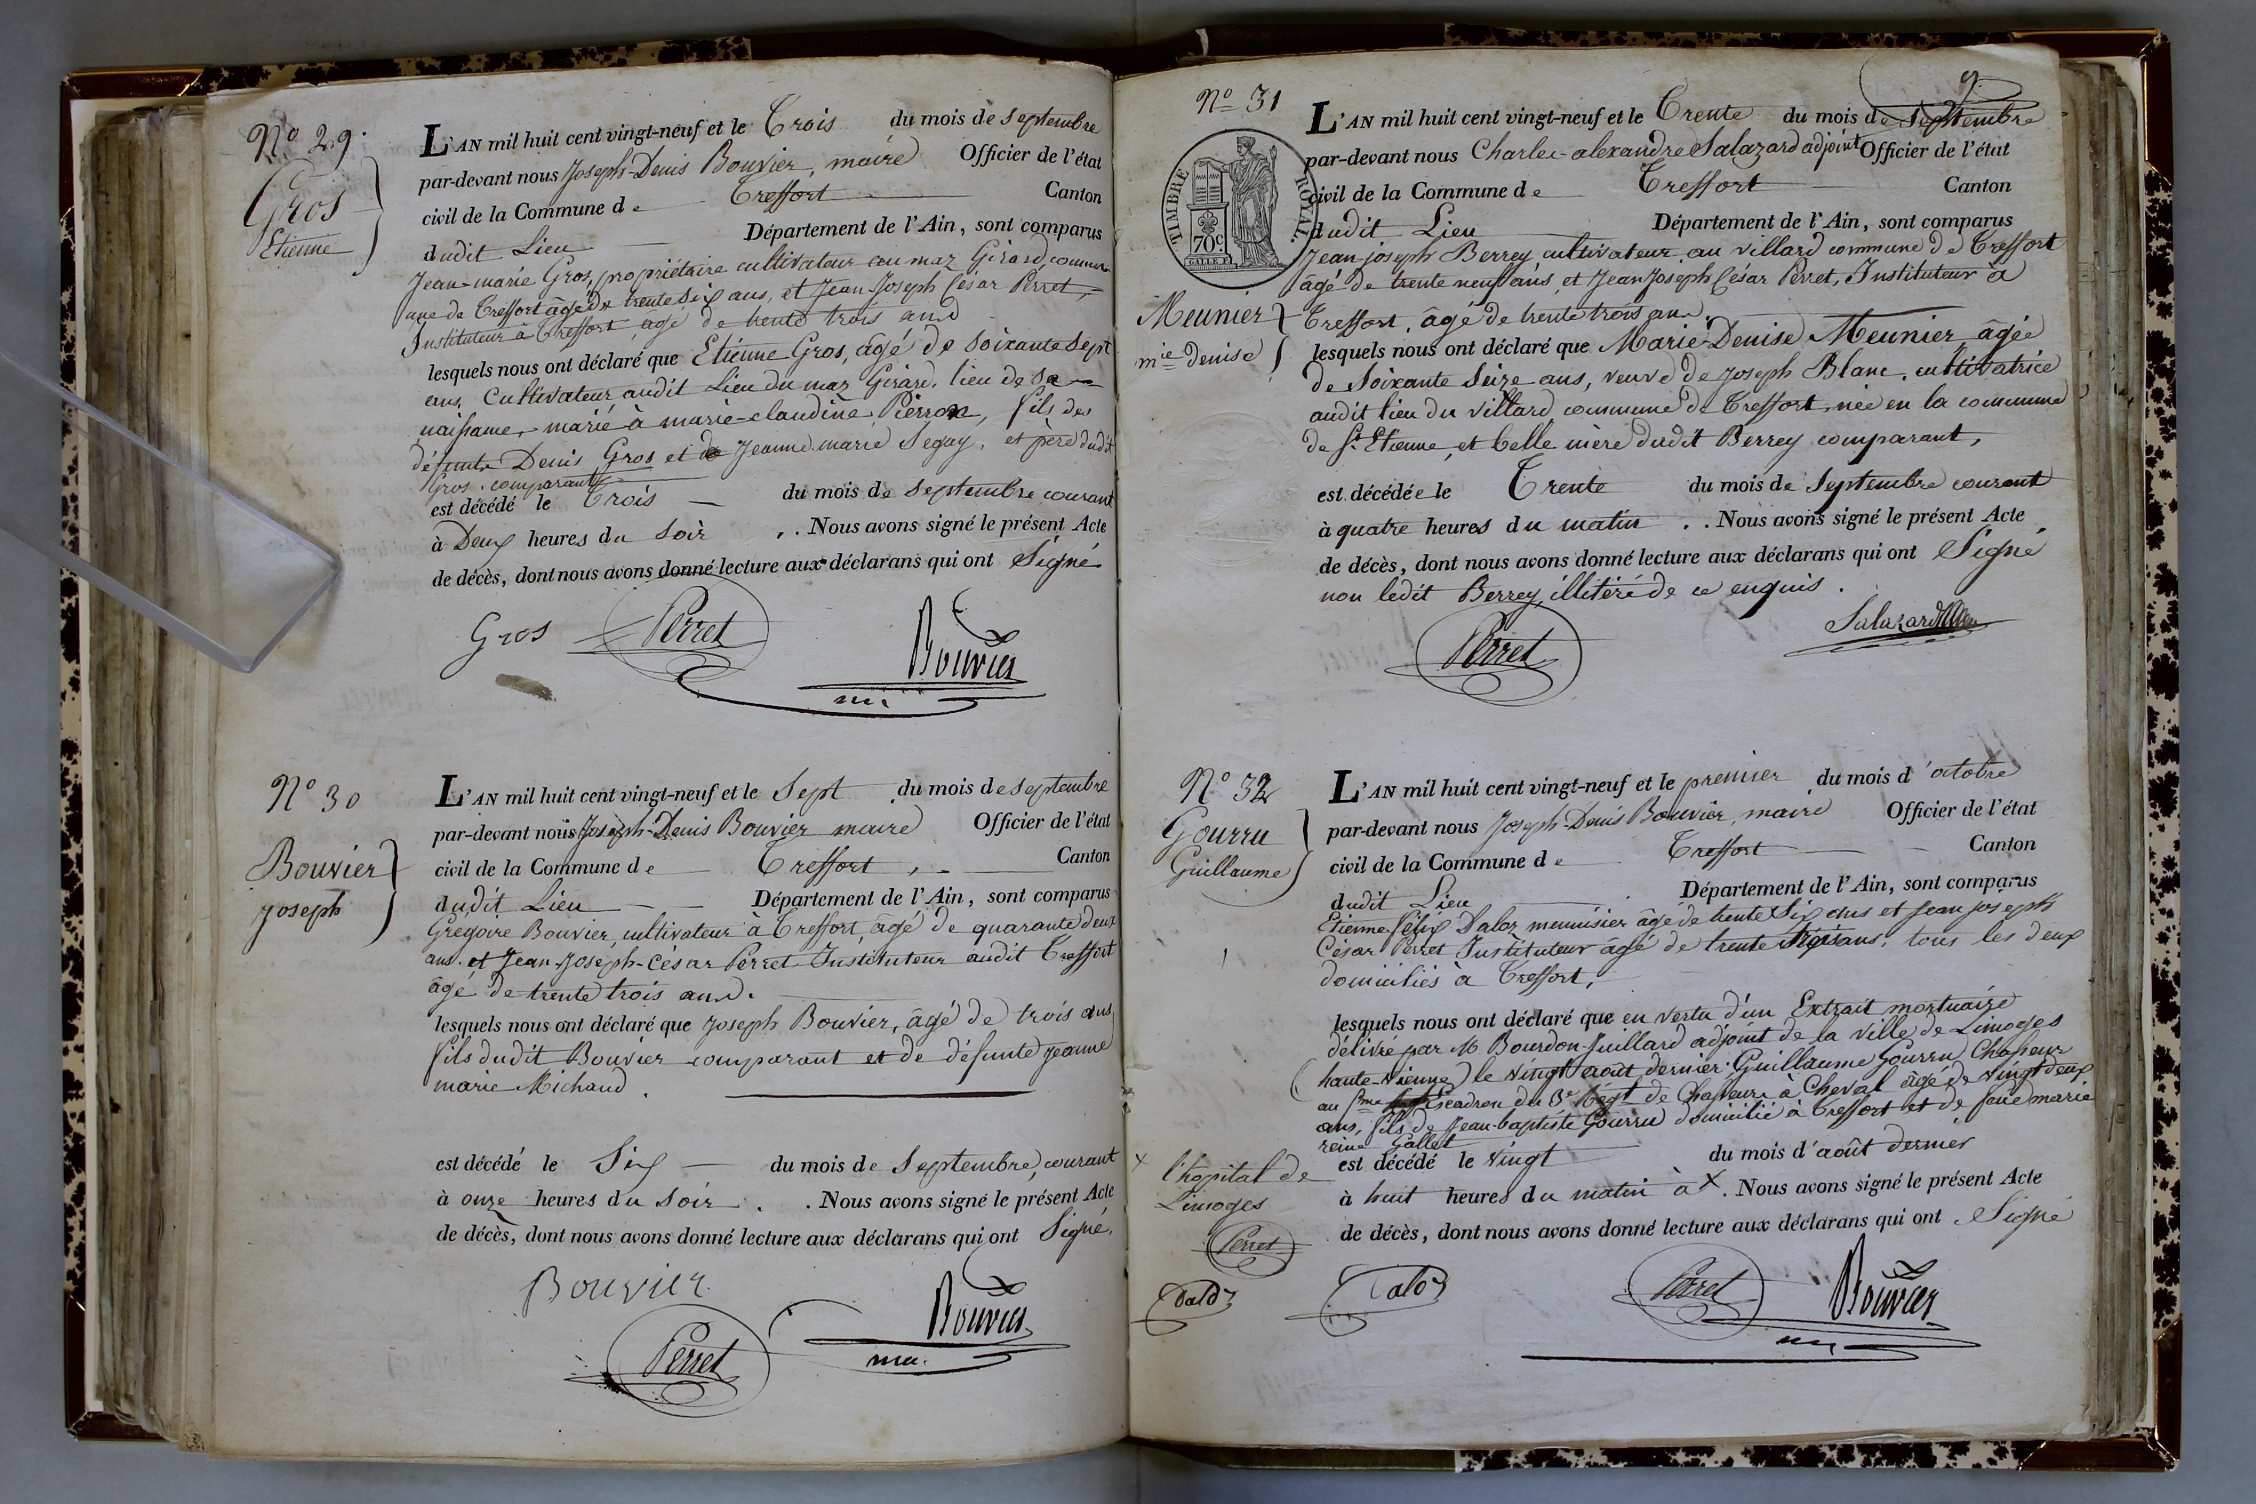 Nº 29.
Gros
Etienne
L'AN mil huit cent vingt-neuf et le Trois du mois de septembre
par-devant nous Joseph-Denis Bouvier, maire Officier de l'état
civil de la Commune de Treffort Canton
dudit Lieu Département de l'Ain, sont comparus
Jean-marie Gros, propriétaire cultivateur au maz Girard, commu-
une de Treffort âgé de trente six ans, et Jean-Joseph César Perret,
Instituteur à Treffort, âgé de trente trois ans
lesquels nous ont déclaré que Etienne Gros, âgé de soixante sept
ans, Cultivateur audit Lieu du maz Girard, lieu de sa
naissance, marié à marie-claudine Pierron, fils des
défunts Denis Gros et de Jeanne marie Segay, et père dudit
Gros, comparant,
est décédé le Trois du mois de septembre courant
à Deux heures du soir . . Nous avons signé le présent Acte
de décès, dont nous avons donné lecture aux déclarans qui ont Signé
Gros Perret Bouvier
Nº 30
Bouvier
Joseph
L'AN mil huit cent vingt-neuf et le Sept du mois de septembre
par-devant nous Joseph-Denis Bouvier maire Officier de l'état
civil de la Commune de Treffort, Canton
dudit Lieu Département de l'Ain, sont comparus
Grégoire Bouvier, cultivateur à Treffort, âgé de quarante deux
ans et Jean-Joseph-César Perret Instituteur audit Treffort
âgé de trente trois ans.
lesquels nous ont déclaré que Joseph Bouvier, âgé de trois ans
fils dudit Bouvier comparant et de défunte Jeanne
marie Michaud.
est décédé le Six du mois de Septembre, courant
à onze heures du soir . . Nous avons signé le présent Acte
de décès, dont nous avons donné lecture aux déclarans qui ont Signé.
Bouvier
Perret Bouvier
ma.
9
Nº 31
TIMBRE ROYAL.
70 c.
Meunier
mie denise
L'AN mil huit cent vingt-neuf et le Trente du mois de Septembre
par-devant nous Charles-alexandre Salazard adjoint Officier de l'état
civil de la Commune de Treffort Canton
dudit Lieu Département de l'Ain, sont comparus
Jean joseph Berrey cultivateur au villard commune de Treffort
âgé de trente neuf ans, et Jean Joseph César Perret, Instituteur à
Treffort, âgé de trente trois ans.
lesquels nous ont déclaré que Marie-Denise Meunier, âgée
de Soixante Seize ans, veuve de Joseph Blanc, cultivatrice
audit lieu du villard commune de Treffort, née en la commune
de St Etienne, et belle mère dudit Berrey comparant,
est décédée le Trente du mois de Septembre courant
à quatre heures du matin . . Nous avons signé le présent Acte
de décès, dont nous avons donné lecture aux déclarans qui ont Signé
non ledit Berrey, illitéré de ce enquis.
Perret Salazard
Nº 32
Gourru
Guillaume
L'AN mil huit cent vingt-neuf et le premier du mois d'octobre
par-devant nous Joseph-Denis Bouvier, maire Officier de l'état
civil de la Commune de Treffort Canton
dudit Lieu Département de l'Ain, sont comparus
Etienne Félix Daloz menuisier âgé de trente Six ans et Jean joseph
César Perret Instituteur âgé de trente trois ans, tous les deux
domiciliés à Treffort,
lesquels nous ont déclaré que en vertu d'un Extrait mortuaire
délivré par M Bourdon-Juillard adjoint de la Ville de Limoges
(haute-Vienne) le vingt août dernier Guillaume Gourru, Chasseur
au Escadron du Régt de Chasseurs à Cheval âgé de vingt deux
ans, fils de Jean-baptiste Gourru domicilié à Treffort et de feue marie
reine Gallet
est décédé le vingt du mois d'août dernier
à huit heures du matin à X. Nous avons signé le présent Acte
de décès, dont nous avons donné lecture aux déclarans qui ont Signé
X l'hopital de
Limoges
Perret
Daloz
Daloz Perret Bouvier